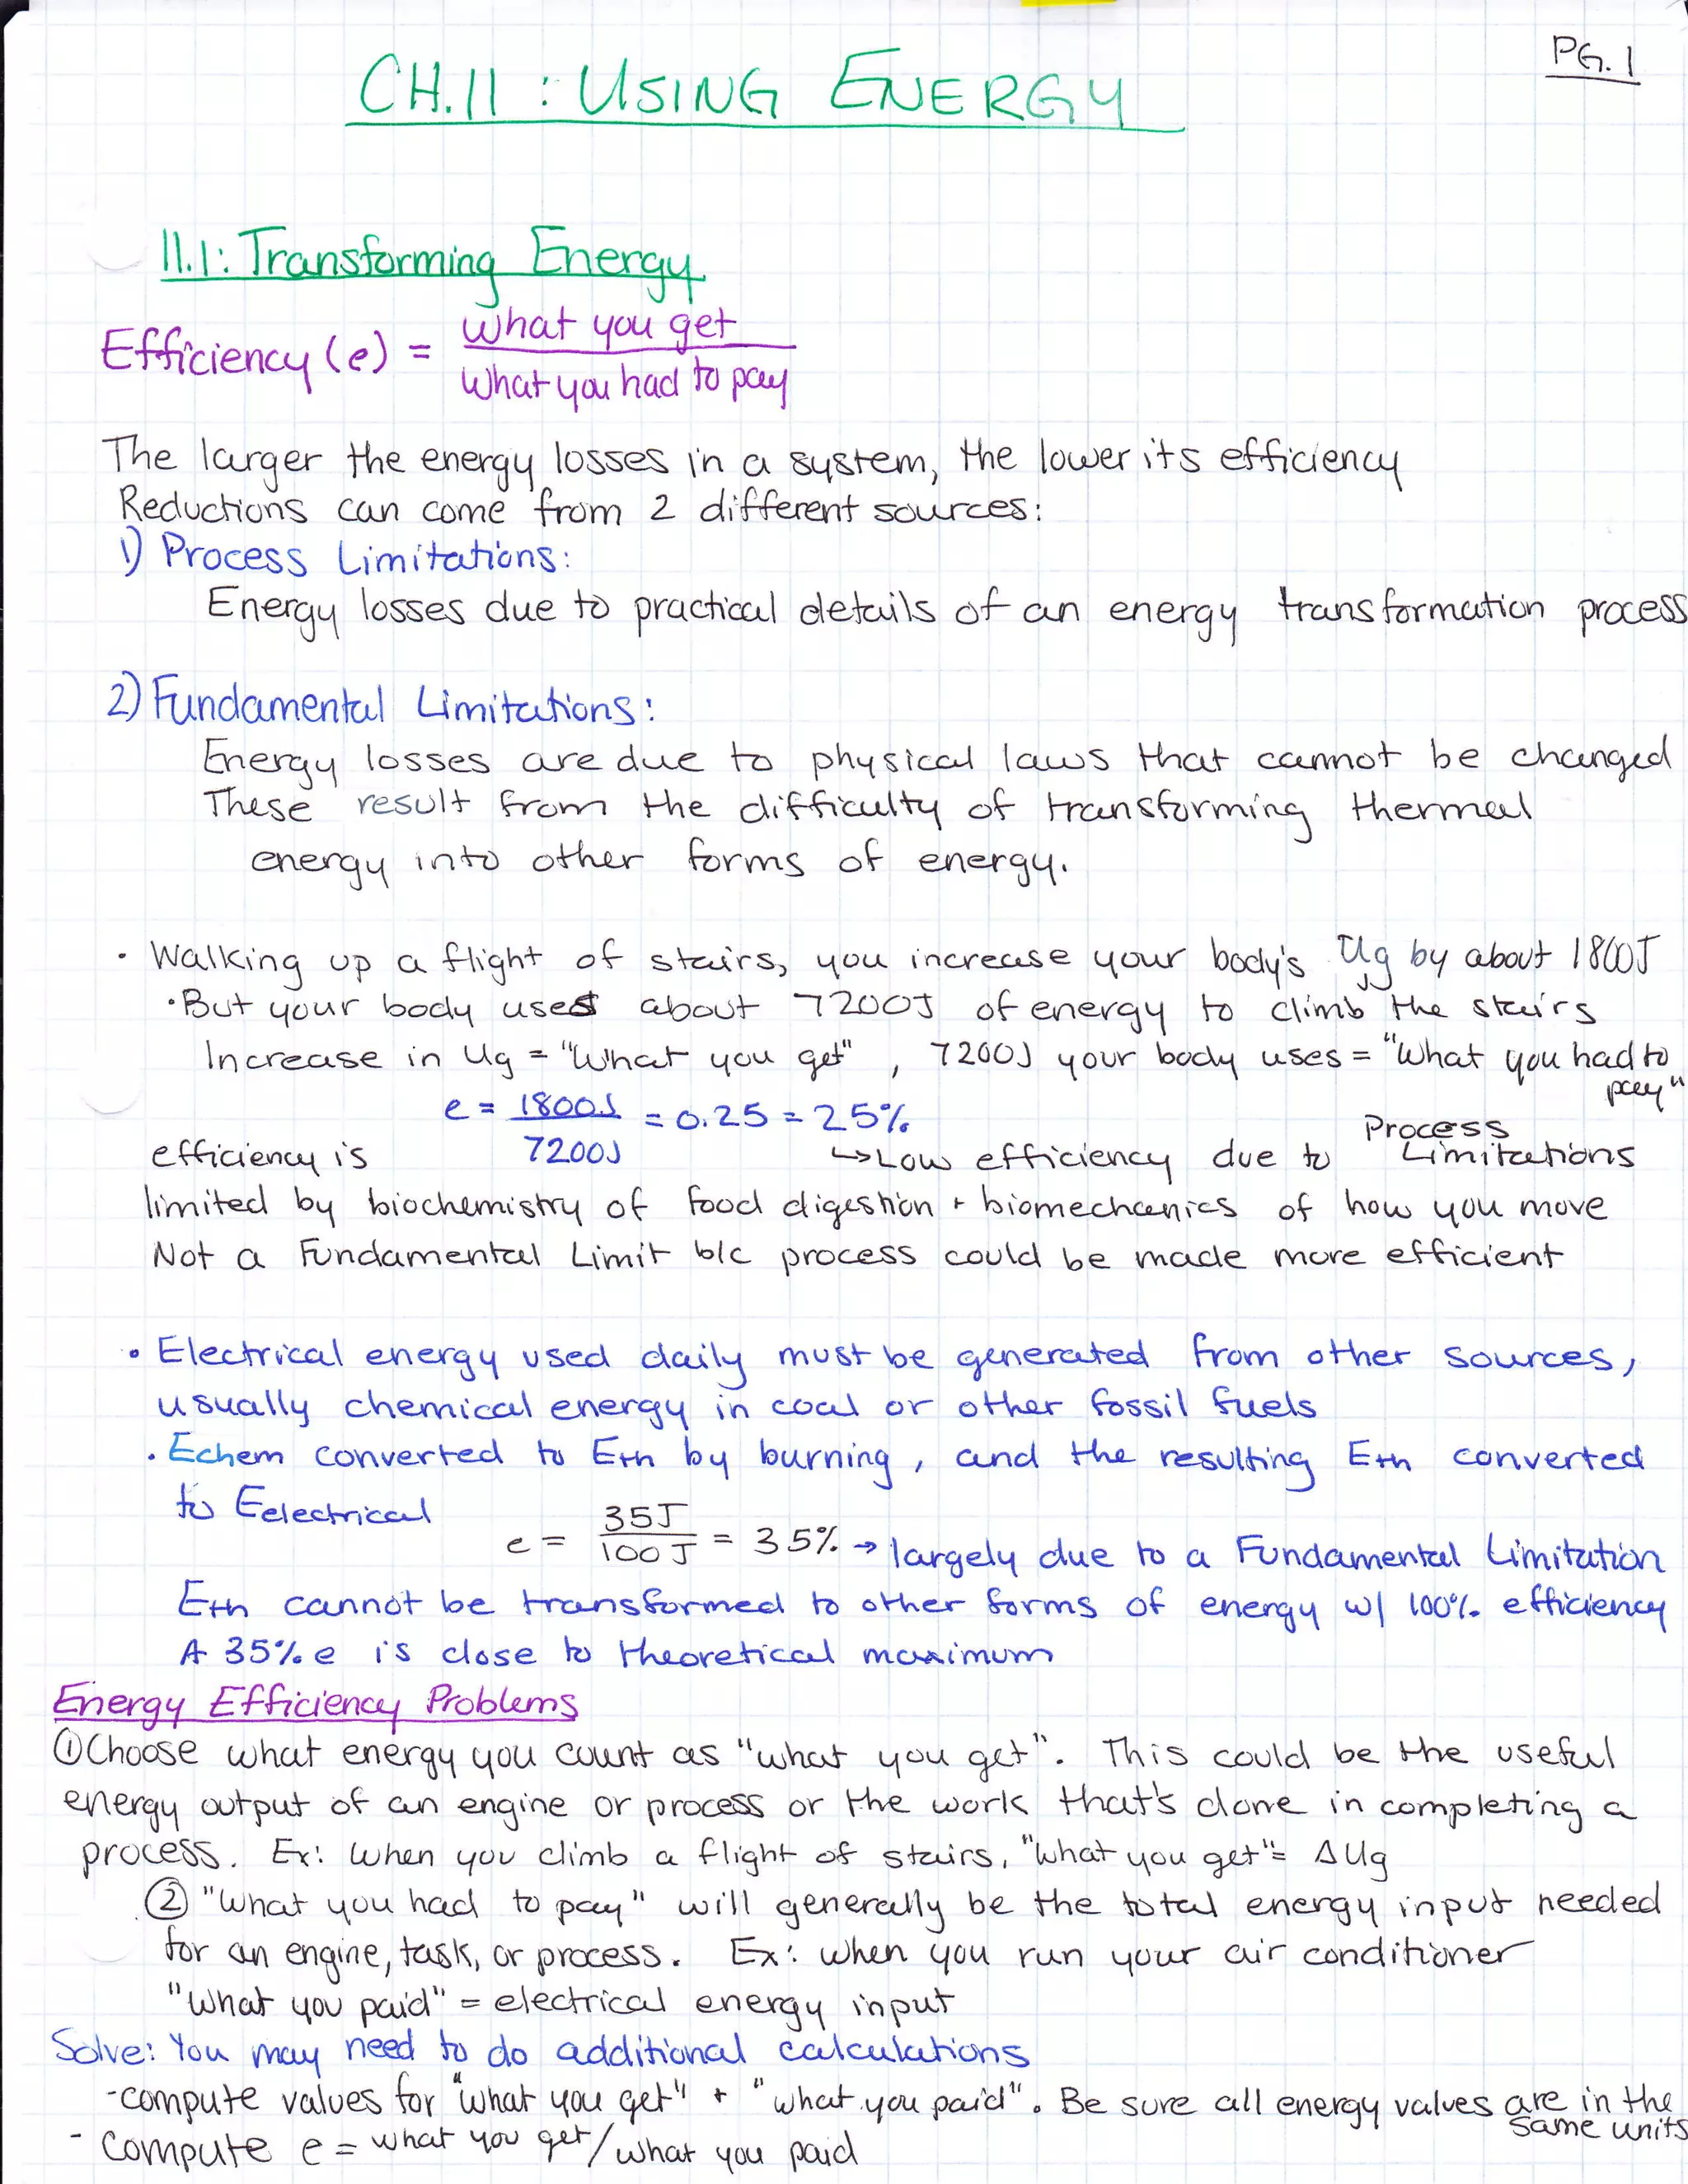 PG. 1
CH.11 : USING ENERGY
11.1: Transforming Energy
Efficiency (e) = what you get
What you had to pay
The larger the energy losses in a system, the lower its efficiency
Reductions can come from 2 different sources:
1) Process Limitations:
Energy losses due to practical details of an energy transformation process
2) Fundamental Limitations:
Energy losses are due to physical laws that cannot be changed
These result from the difficulty of transforming thermal
energy into other forms of energy.
· Walking up a flight of stairs, you increase your body's Ug by about 1800J
· But your body uses about 7200J of energy to climb the stairs
Increase in Ug = "What you get" , 7200J your body uses = "What you had to
pay"
e = 1800J = 0.25 = 25%
7200J
↳ Low efficiency due to Process Limitations
efficiency is
limited by biochemistry of food digestion + biomechanics of how you move
Not a Fundamental Limit b/c process could be made more efficient
• Electrical energy used daily must be generated from other sources,
usually chemical energy in coal or other fossil fuels
. Echem converted to Eth by burning, and the resulting Eth converted
to Eelectrical
e = 35J / 100J = 35% → largely due to a Fundamental Limitation
Eth cannot be transformed to other forms of energy w/ 100% efficiency
A 35% e is close to theoretical maximum
Energy Efficiency Problems
① Choose what energy you count as "what you get". This could be the useful
energy output of an engine or process or the work that's done in completing a
process. Ex: When you climb a flight of stairs, "what you get" = ΔUg
② "What you had to pay" will generally be the total energy input needed
for an engine, task, or process. Ex: when you run your air conditioner
"What you paid" = electrical energy input
Solve: You may need to do additional calculations
-compute values for "what you get" + "what you paid". Be sure all energy values are in the
same units
- compute e = what you get/what you paid